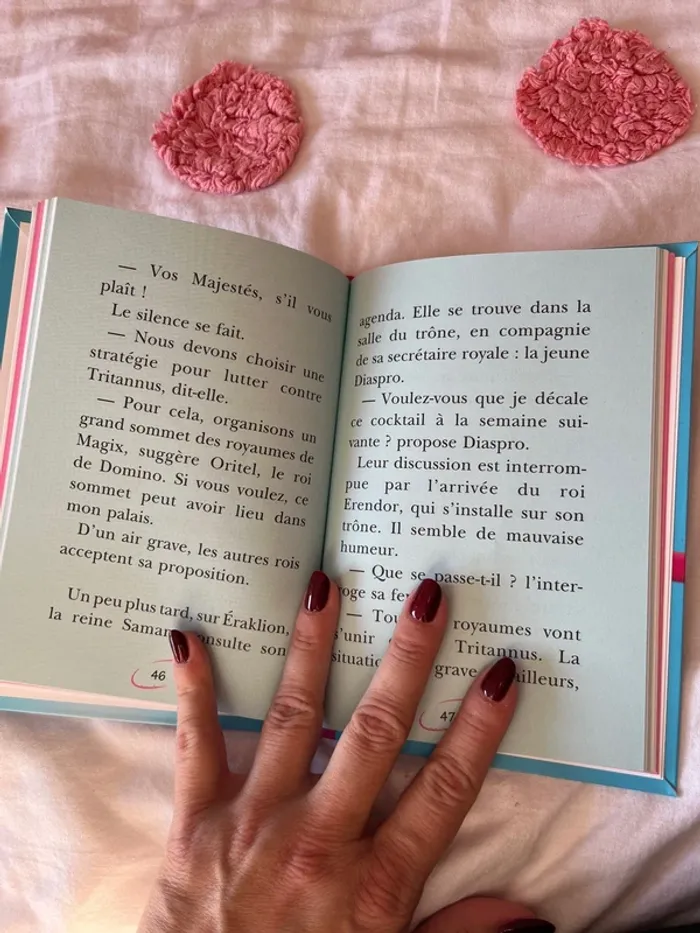 — Vos Majestés, s'il vous
plaît !
Le silence se fait.
— Nous devons choisir une
stratégie pour lutter contre
Tritannus, dit-elle.
— Pour cela, organisons un
grand sommet des royaumes de
Magix, suggère Oritel, le roi
de Domino. Si vous voulez, ce
sommet peut avoir lieu dans
mon palais.
D'un air grave, les autres rois
acceptent sa proposition.
Un peu plus tard, sur Éraklion,
la reine Samar onsulte son
46
agenda. Elle se trouve dans la
salle du trône, en compagnie
de sa secrétaire royale : la jeune
Diaspro.
— Voulez-vous que je décale
ce cocktail à la semaine sui-
vante ? propose Diaspro.
Leur discussion est interrom-
pue par l'arrivée du roi
Erendor, qui s'installe sur son
trône. Il semble de mauvaise
humeur.
— Que se passe-t-il ? l'inter-
roge sa
— royaumes vont
s'unir Tritannus. La
grave
47